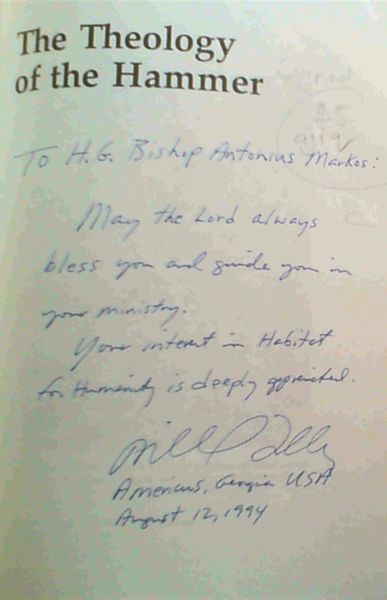 The Theology
of the Hammer
Signed
To H.G. Bishop Antonius Markos:
May the Lord always
bless you and guide you in
your ministry.
Your interest in Habitat
for Humanity is deeply appreciated.
Americus, Georgia USA
August 12, 1994